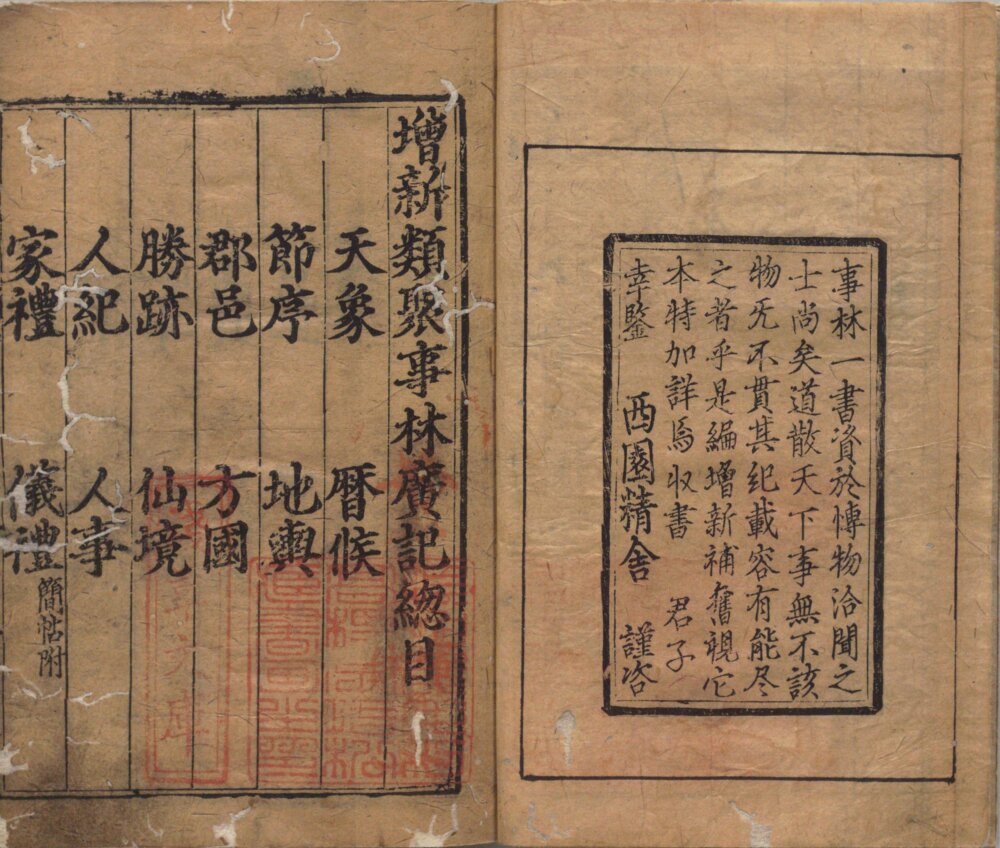 事林一書資於愽物洽聞之
士尚矣道散天下事無不該
物旡不貫其紀載容有能尽
之者乎是編增新補舊視它
本特加詳焉収書　君子
幸鑒　西園精舍　謹咨
增新類聚事林廣記總目
天象　暦候
節序　地輿
郡邑　方國
勝跡　仙境
人紀　人事
家禮　儀禮簡帖附